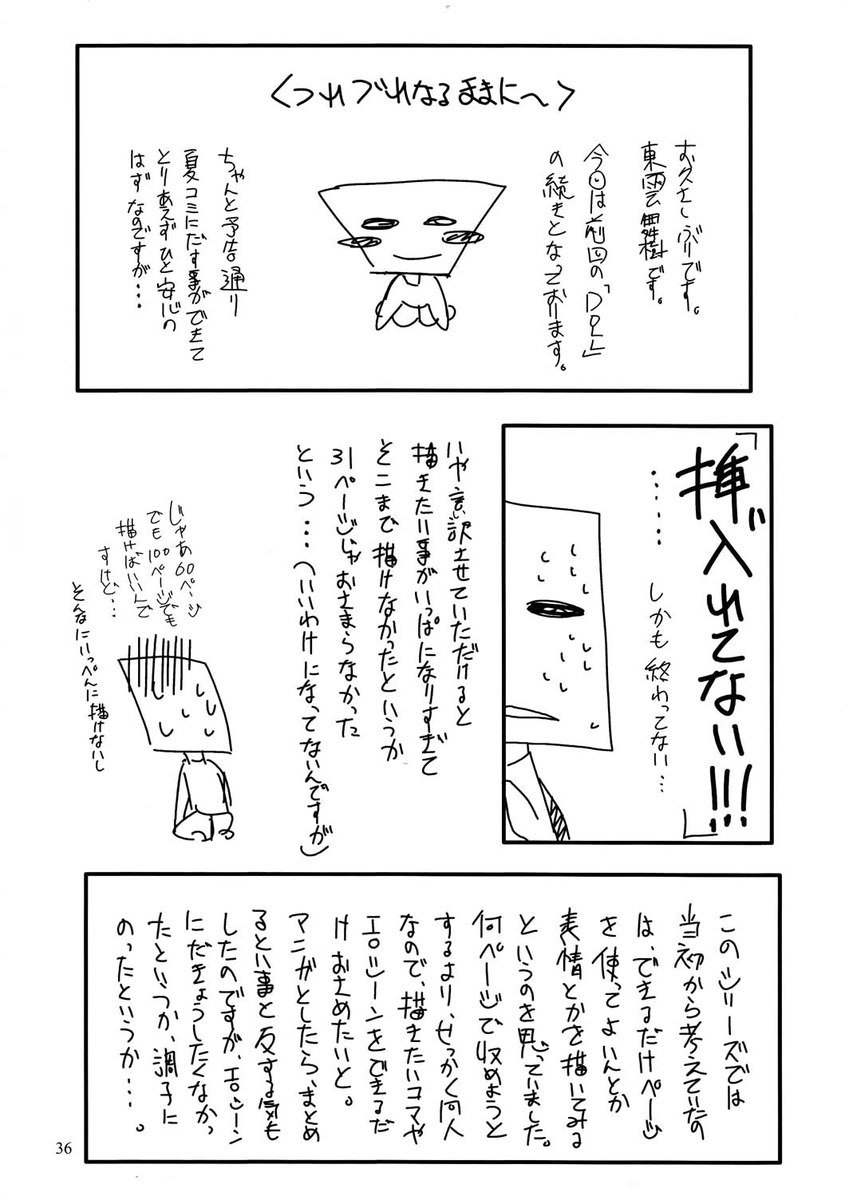 〈つれづれなるままに〜〉
お久しぶりです。
東雲舞樹です。
今回は前回の「DOLL」
の続きとなっております。
ちゃんと予告通り
夏コミにだす事ができて
とりあえずひと安心の
はずなのですが・・・
「挿入れてない!!!」
・・・・・・しかも終わってない・・・
いや言い訳させていただけると
描きたい事がいっぱいになりすぎて
そこまで描けなかったというか
31ページじゃおさまらなかった
という・・・（いいわけになってないんですが）
じゃあ60ページ
でも100ページでも
描けばいいんで
すけど・・・
そんなにいっぺんに描けないし
このシリーズでは
当初から考えていたの
は、できるだけページ
を使ってよいんとか
表情とかを描いてみる
というのを思っていました。
何ページで収めようと
するより、せっかく同人
なので、描きたいコマや
エロシーンをできるだ
けおさめたいと。
マンガとしたら、まとめ
るとい事と反する気も
したのですが、エロシーン
にだきょうしたくなかっ
たといつか、調子に
のったというか・・・。
36